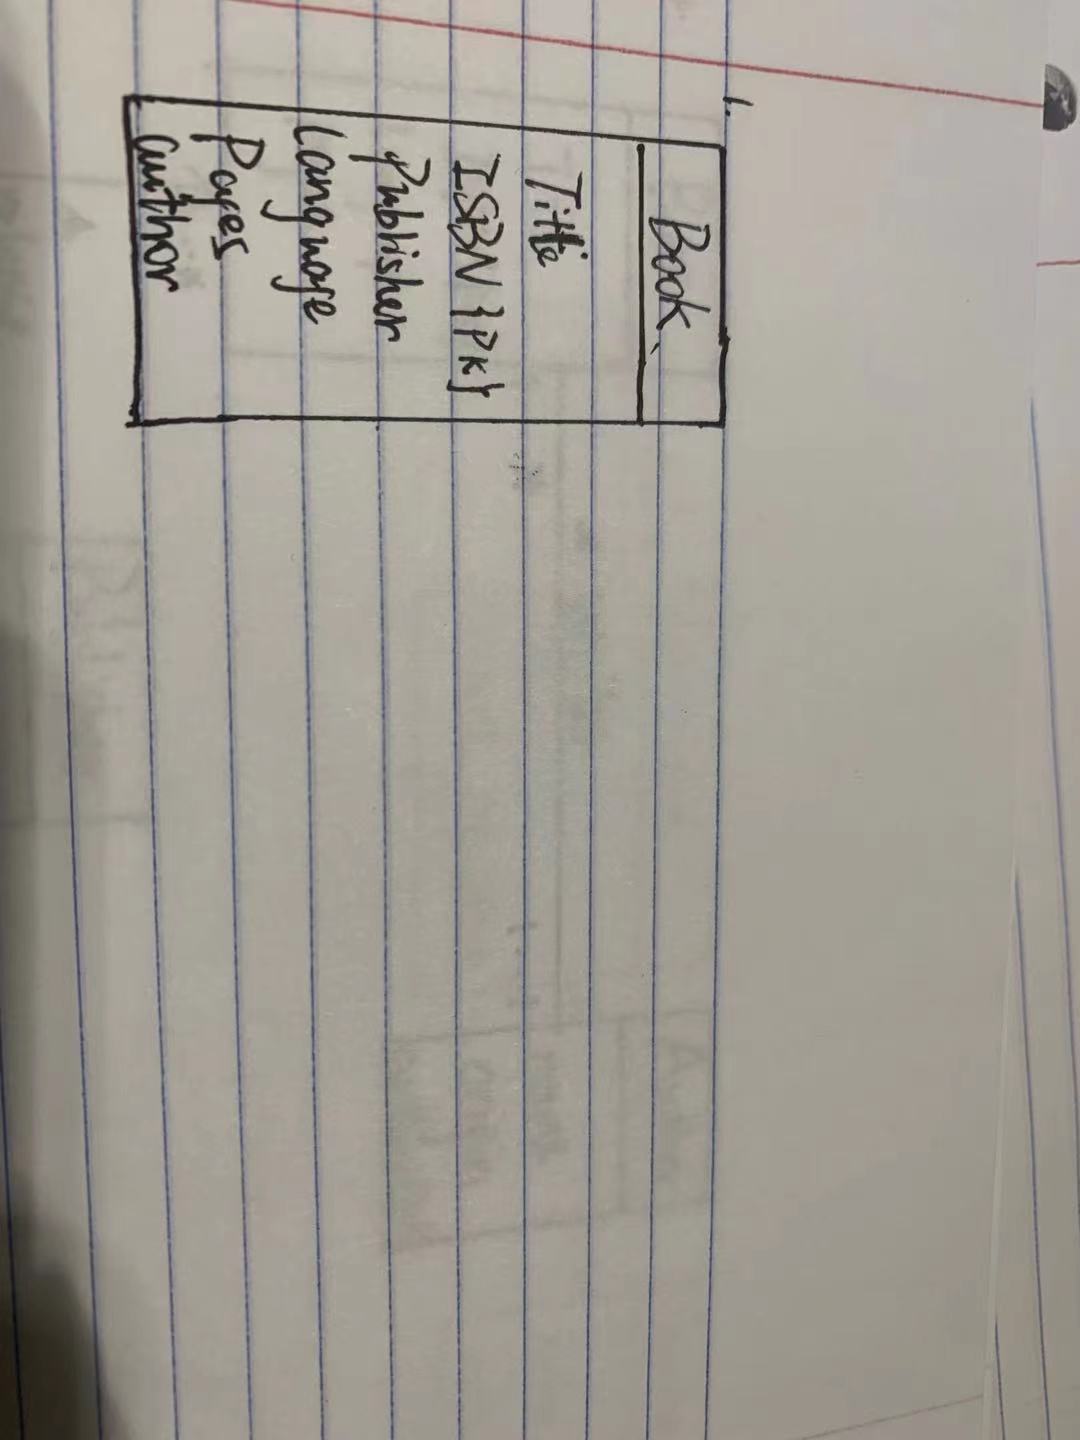 1.
Book
Title
ISBN {PK}
Publisher
Language
Pages
author